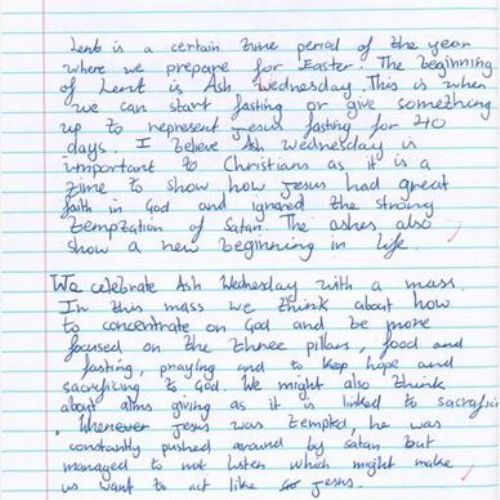 Lent is a certain time period of the year
where we prepare for Easter. The beginning
of Lent is Ash Wednesday. This is when
we can start fasting or give something
up to represent Jesus fasting for 40
days. I believe Ash Wednesday is
important to Christians as it is a
time to show how Jesus had great
faith in God and ignored the strong
temptation of Satan. The ashes also
show a new beginning in life.
We celebrate Ash Wednesday with a mass.
In this mass we think about how
to concentrate on God and be more
focused on the three pillars, food and
fasting, praying and to keep hope and
sacrificing to God. We might also think
about alms giving as it is linked to sacrific
. Whenever Jesus was tempted, he was
constantly pushed around by satan but
managed to not listen which might make
us want to act like Jesus.